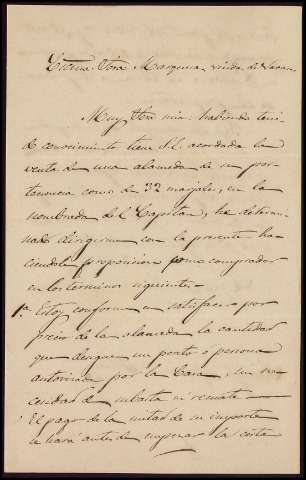 Excma. Sra. Marquesa, viuda de
Muy Sra mia: habiendo teni-
do conocimiento tiene S.E. acordada la
venta de una alameda de su per-
tenencia como de 32 marjales, en la
nombrada del Capitan, he determi-
nado dirigirme con la presente ha-
ciendole proposicion como comprador
en los terminos siguientes.-
1ª Estoy conforme en satisfacer por
precio de la alameda la cantidad
que designe un perito o persona
autorizada por la Casa, sin ne-
cesidad de subasta ni remate
El pago de la mitad de su importe
se hará antes de empezar la corta